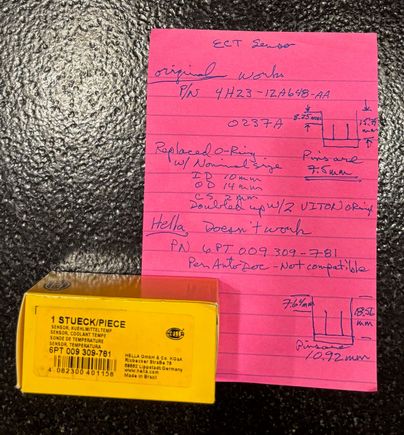 ECT Sensor
original works
P/N 4H23-12A648-AA
0237A
8.25mm
Replaced O-Ring
w/ Nominal size
ID 10mm
OD 14mm
CS 2mm
Doubled up w/2 VITON O Ring
Pins are
7.5mm
Hella Doesn't work
PN 6PT 009 309-781
Per AutoDoc - Not compatible
7.64mm
mm
Pins are
10.92mm
1 STUECK/PIECE
SENSOR, KUEHLMITTELTEMP
SENSOR, COOLANT TEMPE
SONDE DE TEMPERATURE
SENSOR, TEMPERATURA
6PT 009 309-781
HELLA GmbH & Co. KGaA
Rixbecker Straße 75
59552 Lippstadt Germany
www.hella.com
Made in Brazil
4 082300 401158
HELLA